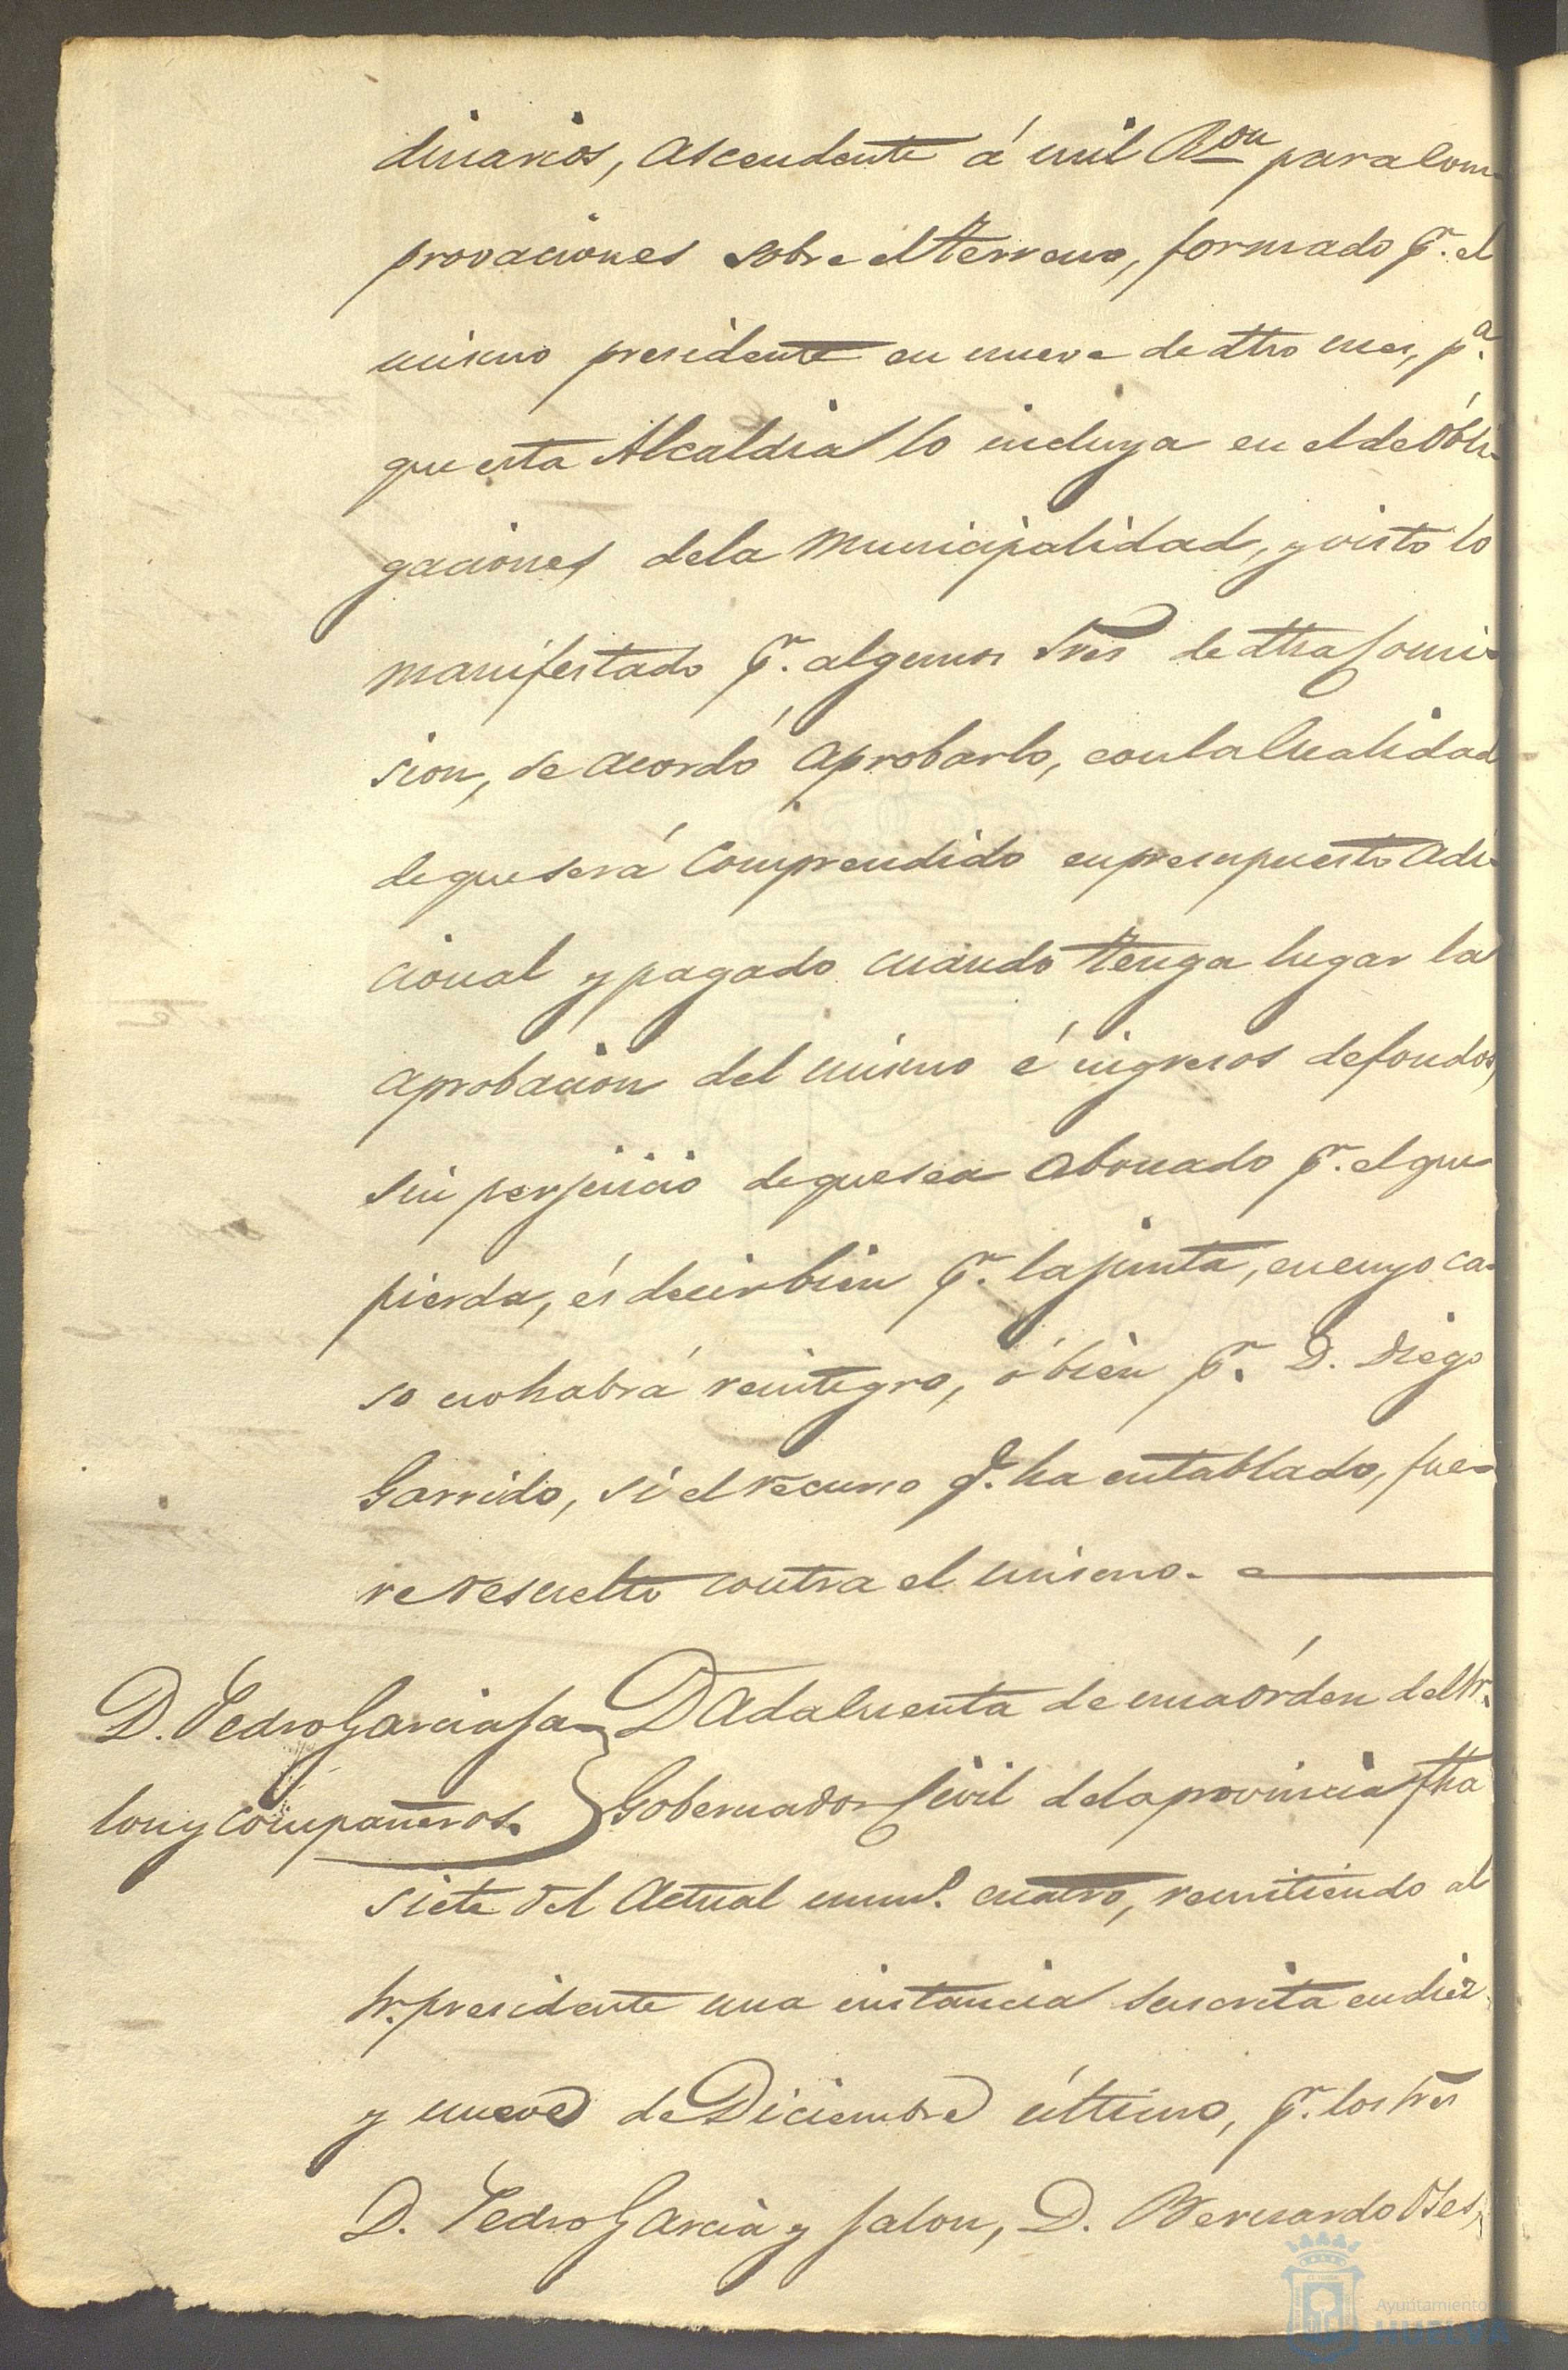 dinarios, ascendente á mil Ron para com-
provaciones sobre el terreno, formado pr. el
mismo presidente en nueve de dho mes, pa.
que esta Alcaldia lo incluya en el de Obli-
gaciones dela Municipalidad, y visto lo
manifestado pr. algunos Sres de dha Comi-
sion, se acordó aprobarlo, con la Cualidad
de que será Comprendido en presupuesto adi-
cional y pagado cuando tenga lugar la
aprobacion del mismo é ingresos de fondos,
sin perjuicio de que sea abonado pr. el que
pierda, és decir bien pr. la junta, en cuyo ca-
so no habrá reintegro, ó bien pr. D. Diego
Garrido, si el recurso q. ha entablado, fue-
re resuelto contra el mismo.
D. Pedro Garcia Ja-
lon y compañeros.
DAda Cuenta de una órden del Sr.
Gobernador Civil dela provincia fha
siete del actual num. cuatro, remitiendo al
Sr. presidente una instancia suscrita en diez
y nueve de Diciembre último, pr. los Sres
D. Pedro Garcia y Jalon, D. Bernardo
Ayuntamiento
HUELVA